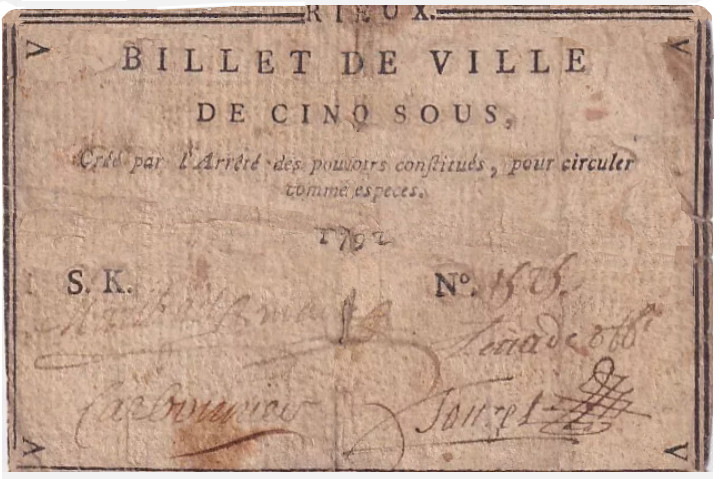 RIEUX.
BILLET DE VILLE
DE CINQ SOUS,
Créé par l'Arrêté des pouvoirs constitués, pour circuler
comme especes.
1792
S. K. Nº. 1525.
Carbonnier Tourel